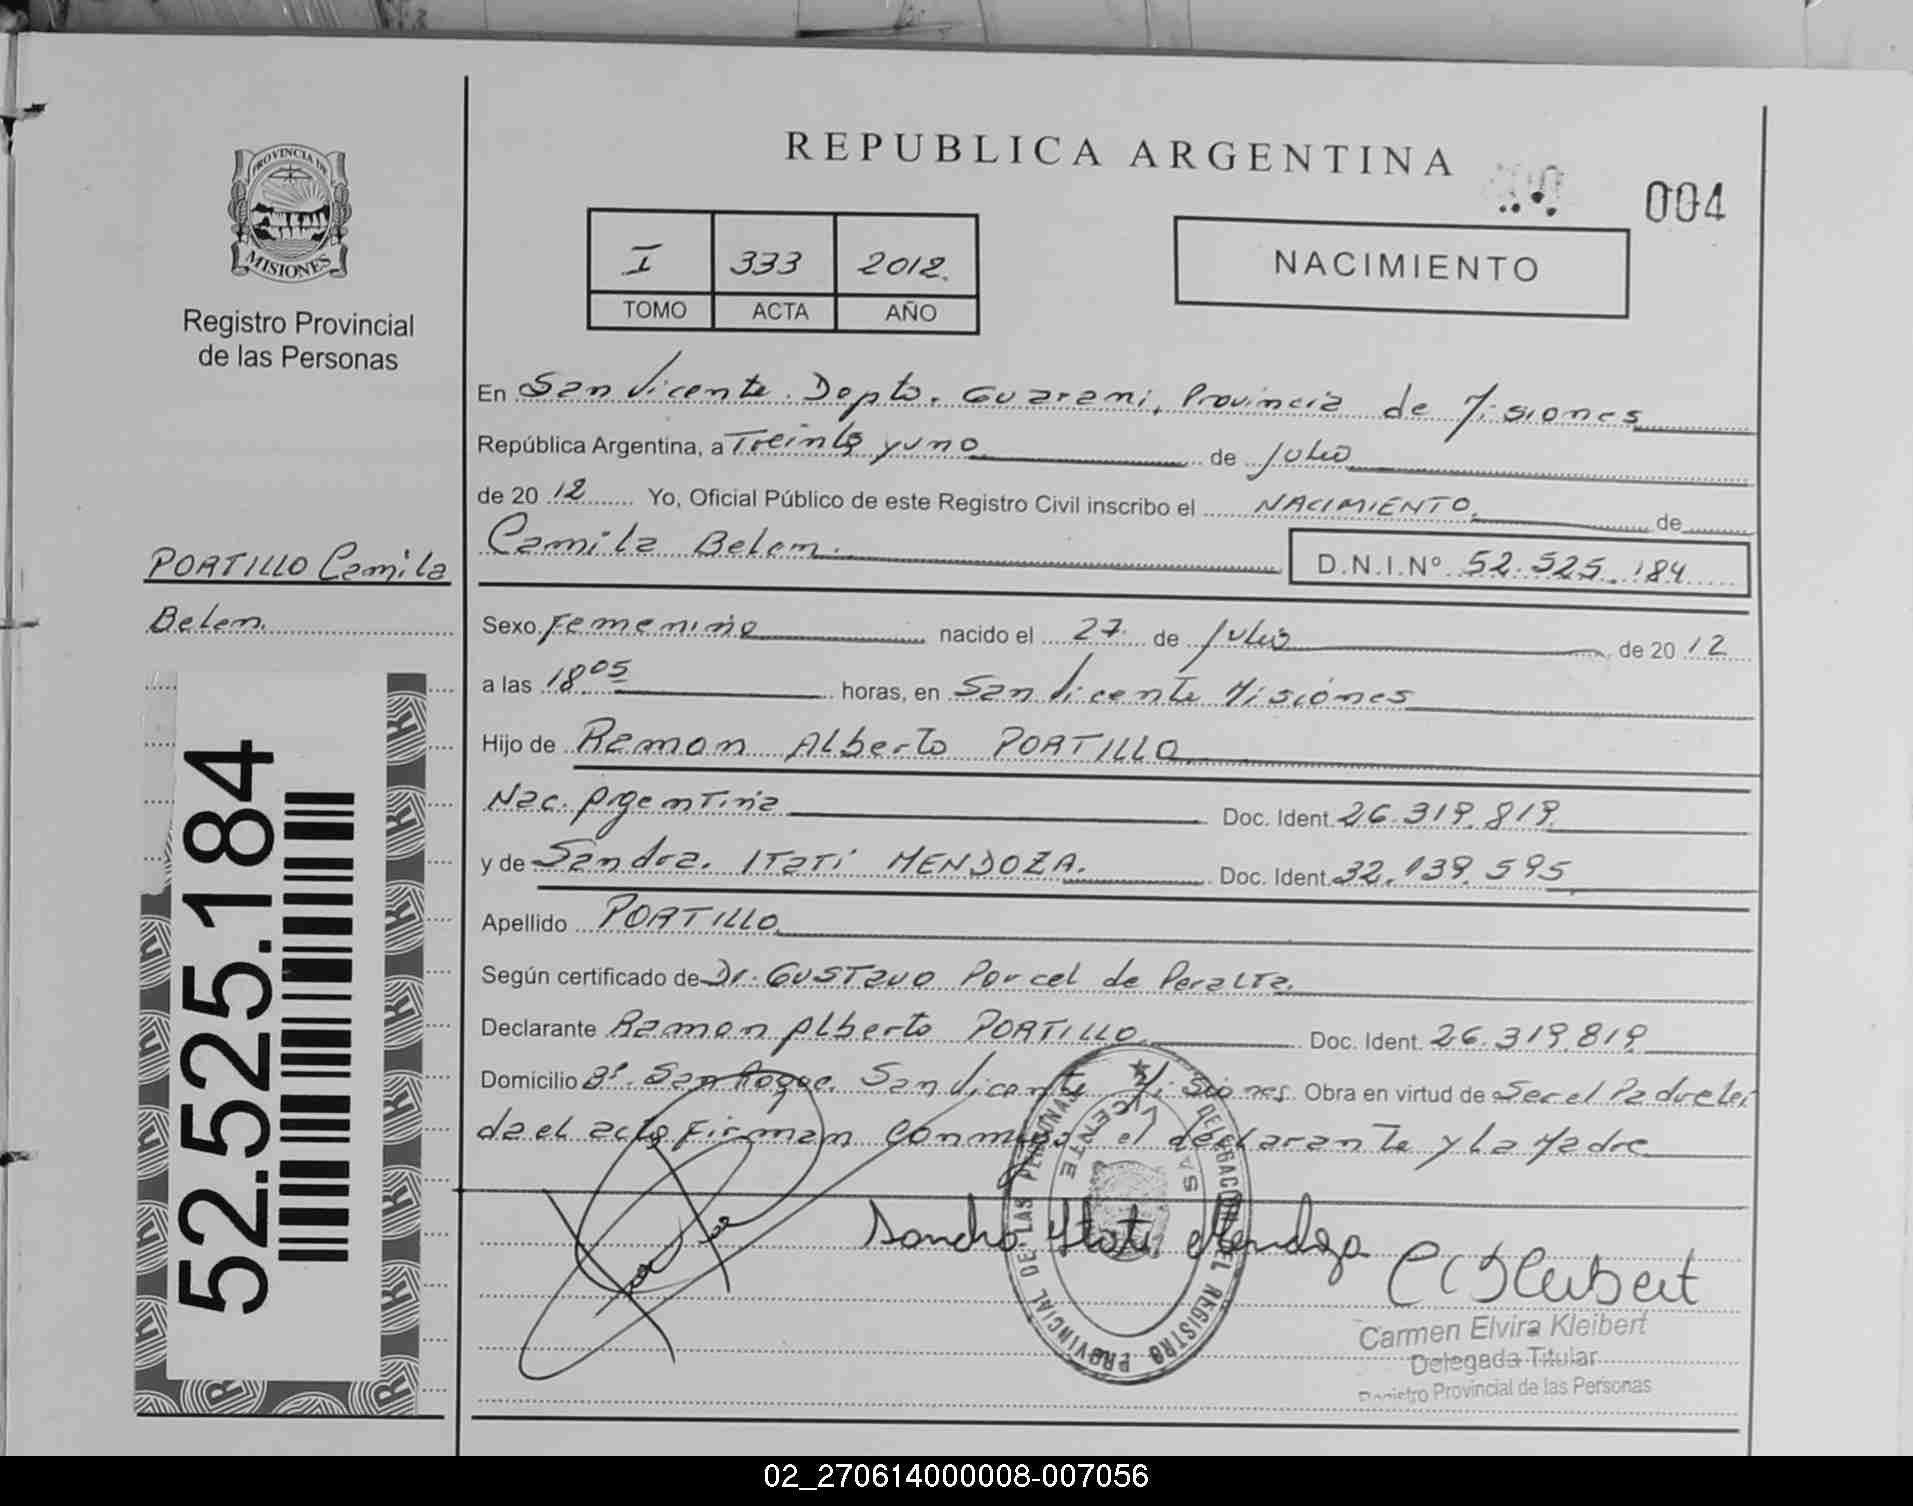 PROVINCIA DE
MISIONES
Registro Provincial
de las Personas
PORTILLO Camila
Belen
52.525.184
REPUBLICA ARGENTINA
004
I 333 2012.
TOMO ACTA AÑO
NACIMIENTO
En San Vicente. Depto. Guarani, Provincia de Misiones
República Argentina, a Treinta y uno de Julio
de 20 12 Yo, Oficial Público de este Registro Civil inscribo el NACIMIENTO de
Camila Belen. D.N.I.Nº 52.525.184
Sexo Femenino nacido el 27 de Julio de 20 12
a las 18 05 horas, en San Vicente Misiones
Hijo de Ramon Alberto PORTILLO
Nac. Argentina Doc. Ident. 26.319.819
y de Sandra. Itati MENDOZA. Doc. Ident. 32.139.595
Apellido PORTILLO
Según certificado de Dr. Gustavo Porcel de Peralta.
Declarante Ramon Alberto PORTILLO Doc. Ident. 26.319.819
Domicilio Bº. San Roque. San Vicente Misiones Obra en virtud de Ser el Padre Lei
da el acta firman conmigo el declarante y La Madre
Sandra Itati Mendoza
DELEGACION DEL REGISTRO PROVINCIAL DE LAS PERSONAS
SAN VICENTE
C Kleibert
Carmen Elvira Kleibert
Delegada Titular
Registro Provincial de las Personas
02_270614000008-007056